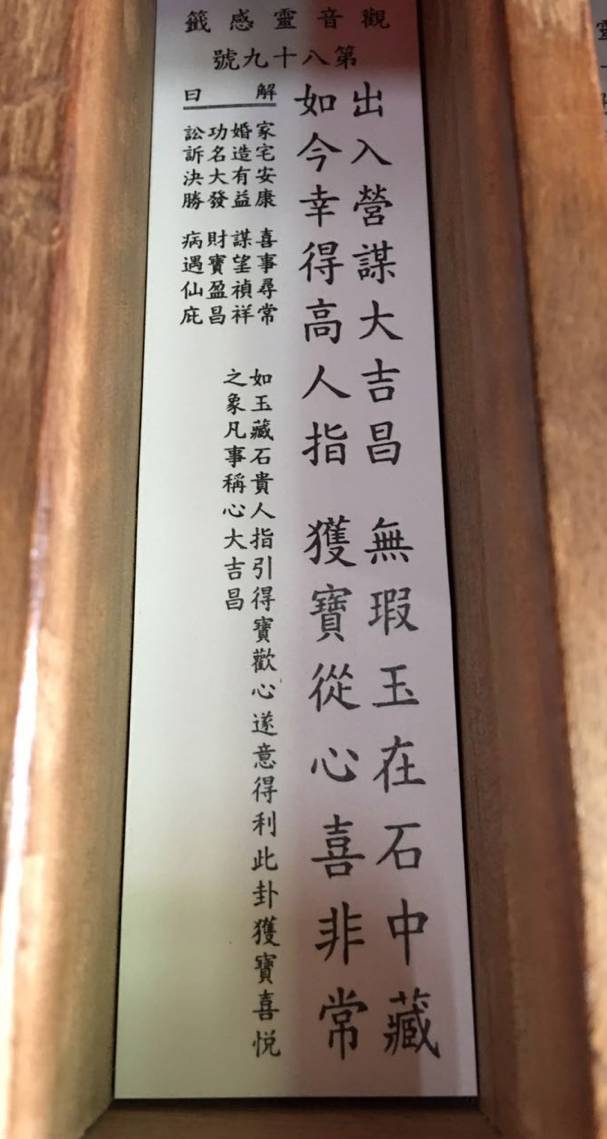 觀音靈感籤
第八十九號
出入營謀大吉昌 無瑕玉在石中藏
如今幸得高人指 獲寶從心喜非常
解曰
家宅安康 喜事尋常
婚造有益 謀望禎祥
功名大發 財寶盈昌
訟訴決勝 病遇仙庇
如玉藏石貴人指引得寶歡心遂意得利此卦獲寶喜悅
之象凡事稱心大吉昌